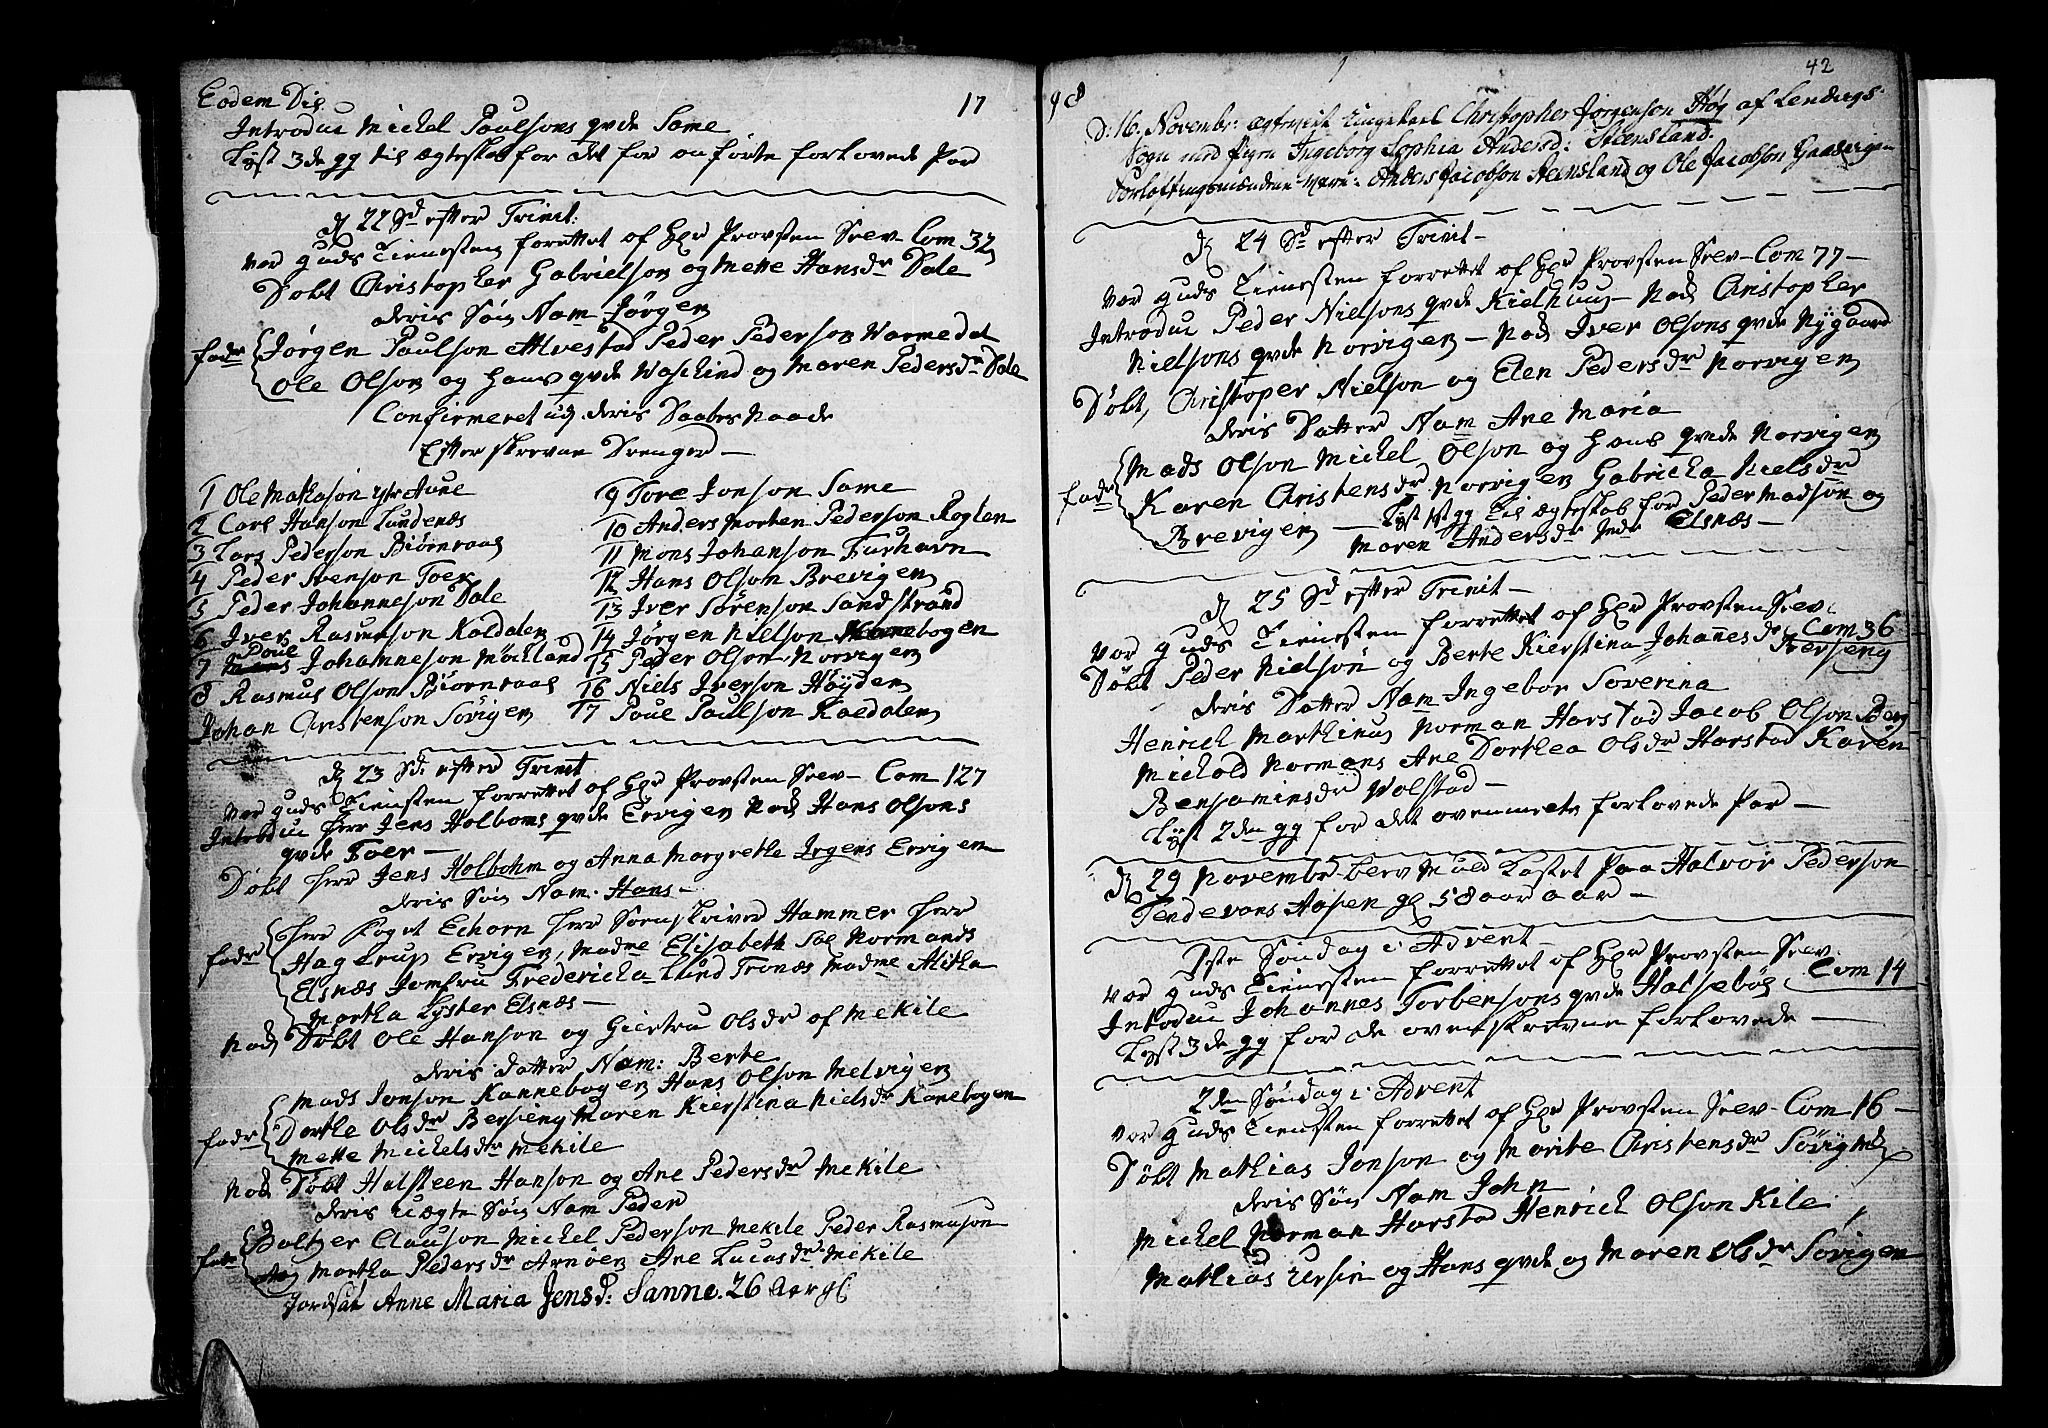 Eodem Die
17
Introduc Mickel Paulsons qvde Same
Lyst 3de gg til ægteskab for det for anførte forlovede Par
22 Sd efter Trinit:
var guds Tienesten forrettet of Hr Provsten Selv Com 32
Døbt Christopher Gabrielson og Mette Hansdr Dale
deris Søn Nam Jørgen
fadr Jørgen Paulson Alvestad Peder Pederson Varmedal
Ole Olson og Hans qvde Waskind og Maren Pedersdr Dale
Confirmeret udj deris Daabes Naade
Efter skrevne Drenger
1 Ole Mathison Aune
2 Carl Hanson Lundenæs
3 Lars Pederson Biørnraae
4 Peder Svenson Toer
5 Peder Johanneson Dale
6 Iver Rasmuson Kaldalen
7 Poul Johanneson Møckland
8 Rasmus Olson Biornraae
Johan Christenson Sørvigen
9 Tore Jonson Same
10 Anders Morten Pederson Roglen
11 Mons Johanson Furhavn
12 Hans Olson Brevigen
13 Iver Sørenson Sandstrand
14 Jørgen Nielson Kannebogen
15 Peder Olson Norvigen
16 Niels Iverson Høyden
17 Poul Paulson Kaldalen
23 Sd efter Trinit
var guds Tiensten forrettet of Hr Provsten Selv Com 127
Introduc Herr Jens Holboms qvde Ervigen Nok Hans Olsons
qvde Toer
Døbt Herr Jens Holbohm og Anna Margrethe Irgens Ervigen
deris Søn Nam Hans
fadr Herr Foget Echorn Herr Sorenskriver Hammer Herr
Hagerup Ervigen, Madme Elisabeth Sal Normands
Elsnæs Jomfru Fredericha Lund Tronæs Madme Alitha
Martha Lyster Elsnæs
Nok Døbt Ole Hanson og Giertru Olsdr of Mekile
deris datter Nam: Berte
fadr Mads Jonson Kannebogen Hans Olson Melvigen
Dorthe Olsdr Berseng Maren Kierstina Nielsdr Kanebogen
Mette Mickelsdr Mekile
Nok Døbt Halsteen Hanson og Ane Pedersdr Mekile
deris uægte Søn Nam Peder
fadr Baltzer Clauson Mickel Pederson Mekile Peder Rasmuson
og Martha Pedersdr Arnøen Ane Lucasdr Mekile
Jordsat Anne Maria Jensd: Sanne. 26 Aar gl
42
D: 16. Novembr: ægteviet Ungekarl Christopher Jørgenson Høg af Lendvigs
Sogn med Pigen Ingeborg Sophia Andersd: Steensland.
Forløftingsmændene Vare: Anders Jacobson Steensland og Ole Jacobson Gaasvigen
24 Sd efter Trinit
var guds Tienesten forrettet of Hr Provsten Selv Com 77
Introduc Peder Nielsons qvde Kielhuus Nok Christopher
Nielsons qvde Norvigen Nok Iver Olsons qvde Nygaard
Døbt, Christoper Nielson og Elen Pedersdr Norvigen
deris Datter Nam Ane Maria
fadr Mads Olson Mickel Olson og Hans qvde Norvigen
Karen Christensdr Norvigen Gabrielia Nielsdr
Brevigen Lyst 1st gg til ægteskab for Peder Madson og
Maren Andersdr Elsnæs
25 Sd efter Trinit
var guds Tienesten forrettet of Hr Provsten Selv: Com 36
Døbt Peder Nielson og Berte Kierstina Johannesdr Berseng
deris Datter Nam Ingebor Soverina
Henrich Marthinus Norman Harstad Jacob Olson Berg
Mickold Normans Ane Dorthea Olsdr Harstad Karen
Benjaminsdr Volstad
Lyst 2den gg for det ovenmelte forlovede Par
29 Novembr blev Muld Kastet paa Halvor Pederson
Tendevans Aasen gl 58 aar
1ste Søndag i Advent
var guds Tienesten forrettet of Hr Provsten Selv: Com 14
Introduc Johannes Torbensons qvde Halsebøe
Lyst 3de gg for de ovenskrevne forlovede
2den Søndag i Advent
var guds Tiensten forrettet of Hr Provsten Selv Com 16
Døbt Mathias Jonson og Marite Christensdr Sørvigen
deris Søn Nam John
Mickel Norman Harstad Henrich Olson Kile
Mathias Ursin og Hans qvde og Maren Olsdr Sørvigen